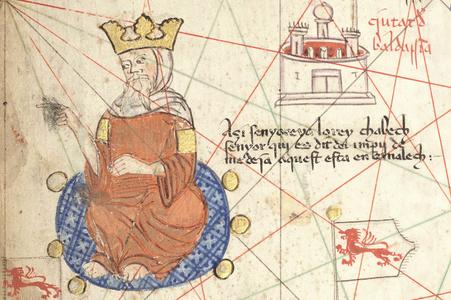 ciutat d
baldassia
Açi senyoreye lo rey chabech
senyor qui es dit del imperi de
medeja aquest esta en emalech :-